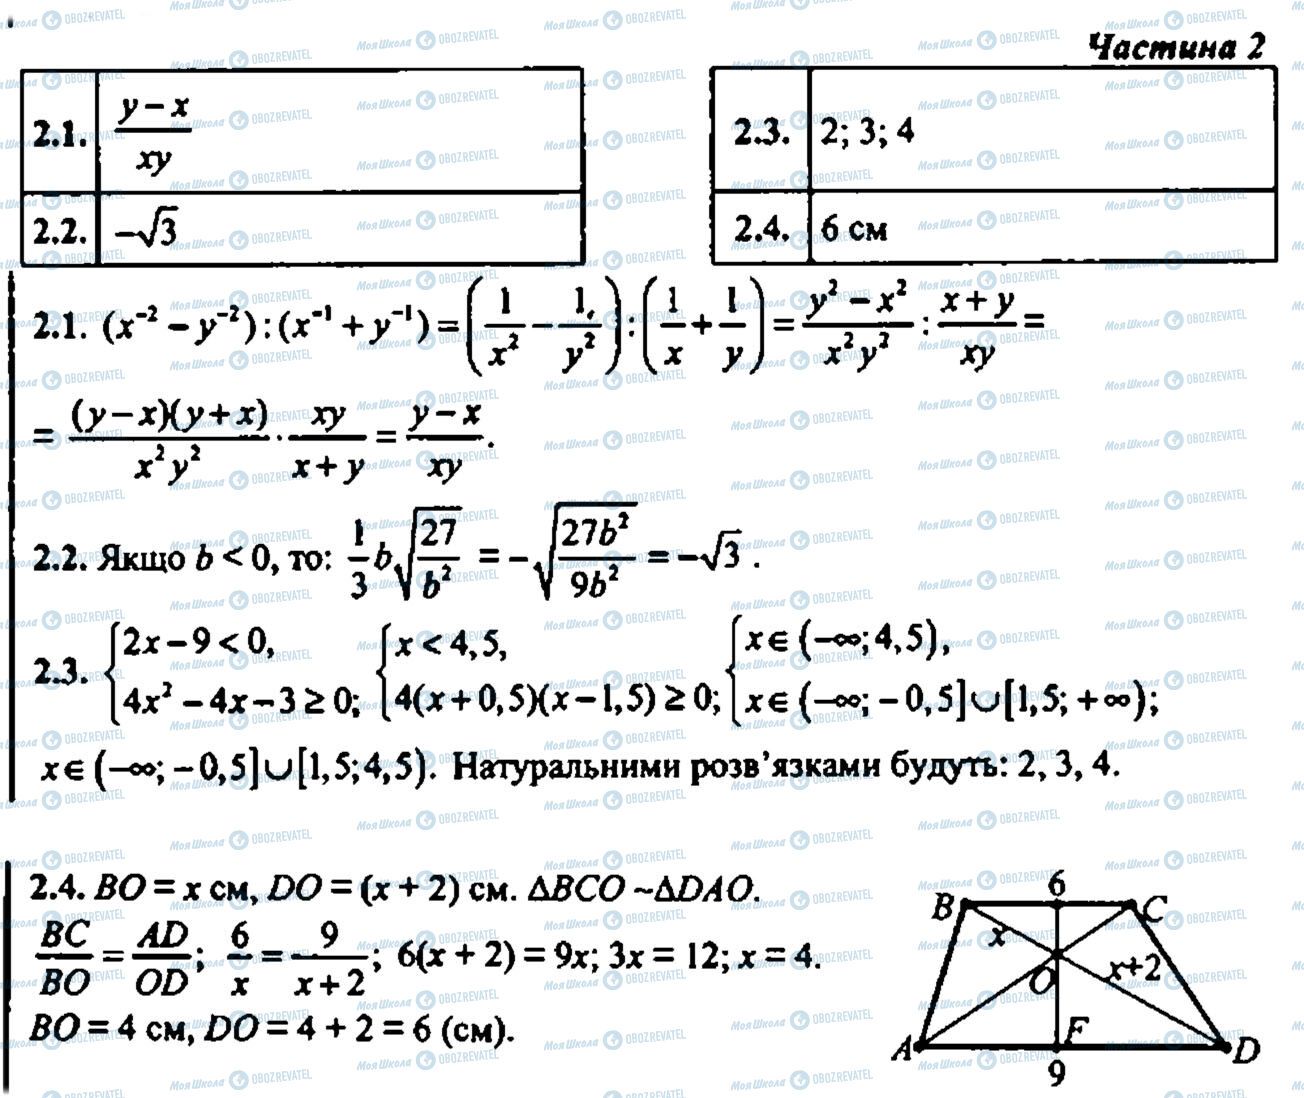 Частина 2
2.1. (y − x)/(xy)
2.2. −√3
2.3. 2; 3; 4
2.4. 6 см
2.1. (x⁻² − y⁻²) : (x⁻¹ + y⁻¹) = (1/x² − 1/y²) : (1/x + 1/y) = (y² − x²)/(x²y²) : (x + y)/(xy) =
= ((y − x)(y + x))/(x²y²) · (xy)/(x + y) = (y − x)/(xy).
2.2. Якщо b < 0, то: 1/3 b√(27/b²) = −√(27b²/9b²) = −√3 .
2.3. { 2x − 9 < 0, 4x² − 4x − 3 ≥ 0; { x < 4,5, 4(x + 0,5)(x − 1,5) ≥ 0; { x ∈ (−∞; 4,5), x ∈ (−∞; − 0,5] ∪ [1,5; + ∞);
x ∈ (−∞; − 0,5] ∪ [1,5; 4,5). Натуральними розв’язками будуть: 2, 3, 4.
2.4. BO = x см, DO = (x + 2) см. ΔBCO ~ ΔDAO.
BC/BO = AD/OD; 6/x = 9/(x + 2); 6(x + 2) = 9x; 3x = 12; x = 4.
BO = 4 см, DO = 4 + 2 = 6 (см).
6
B C
x
O x+2
F
A D
9
МояШкола OBOZREVATEL